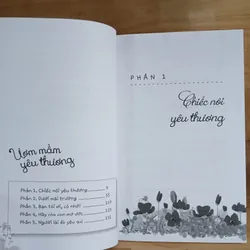 Ươm mầm
yêu thương
Phần 1. Chiếc nôi yêu thương
Phần 2. Dưới mái trường
Phần 3. Bạn tôi ơi, cố nhé!
Phần 4. Hãy cứu con mơ ước
Phần 5. Người lái đò yêu quí
PHẦN 1
Chiếc nôi
yêu thương